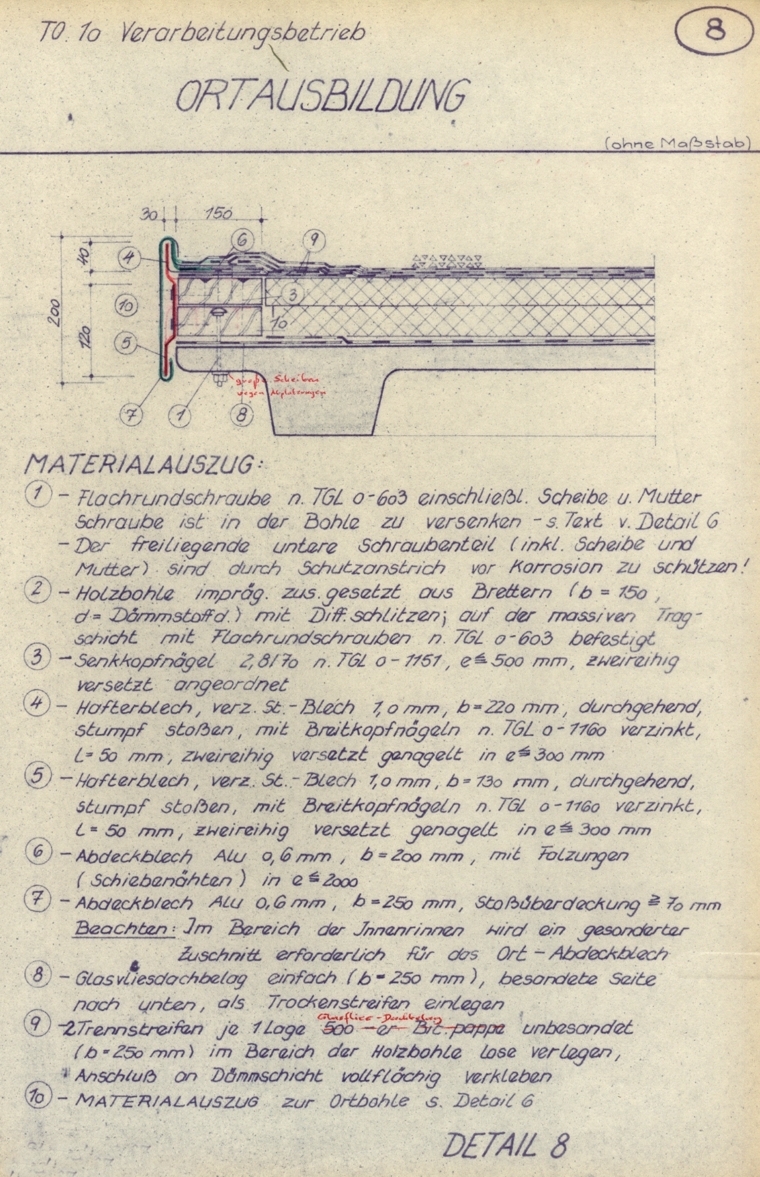 TO. 10 Verarbeitungsbetrieb
8
ORTAUSBILDUNG
(ohne Maßstab)
30 150
6 9
4
40
200
10
3
10
120
5
große Scheiben
wegen Abplatzungen
7 1 8
MATERIALAUSZUG:
1 - Flachrundschraube n. TGL 0-603 einschließl. Scheibe u. Mutter
Schraube ist in der Bohle zu versenken - s. Text v. Detail 6
- Der freiliegende untere Schraubenteil (inkl. Scheibe und
Mutter) sind durch Schutzanstrich vor Korrosion zu schützen!
2 - Holzbohle impräg. zus. gesetzt aus Brettern (b = 150,
d = Dämmstoffd.) mit Diff. schlitzen; auf der massiven Trag-
schicht mit Flachrundschrauben n. TGL 0-603 befestigt
3 - Senkkopfnägel 2,8/70 n. TGL 0-1151, e ≦ 500 mm, zweireihig
versetzt angeordnet
4 - Hafterblech, verz. St.-Blech 1,0 mm, b = 220 mm, durchgehend,
stumpf stoßen, mit Breitkopfnägeln n. TGL 0-1160 verzinkt,
L = 50 mm, zweireihig versetzt genagelt in e ≦ 300 mm
5 - Hafterblech, verz. St.-Blech 1,0 mm, b = 130 mm, durchgehend,
stumpf stoßen, mit Breitkopfnägeln n. TGL 0-1160 verzinkt,
L = 50 mm, zweireihig versetzt genagelt in e ≦ 300 mm
6 - Abdeckblech Alu 0,6 mm, b = 200 mm, mit Falzungen
(Schiebenähten) in e ≦ 2000
7 - Abdeckblech Alu 0,6 mm, b = 250 mm, Stoßüberdeckung ≧ 70 mm
Beachten: Im Bereich der Innenrinnen wird ein gesonderter
Zuschnitt erforderlich für das Ort-Abdeckblech
8 - Glasvliesdachbelag einfach (b = 250 mm), besandete Seite
nach unten, als Trockenstreifen einlegen
9 - 2 Trennstreifen je 1 Lage 500-er Bit. pappe unbesandet
(b = 250 mm) im Bereich der Holzbohle lose verlegen,
Anschluß an Dämmschicht vollflächig verkleben
10 - MATERIALAUSZUG zur Ortbohle s. Detail 6
DETAIL 8